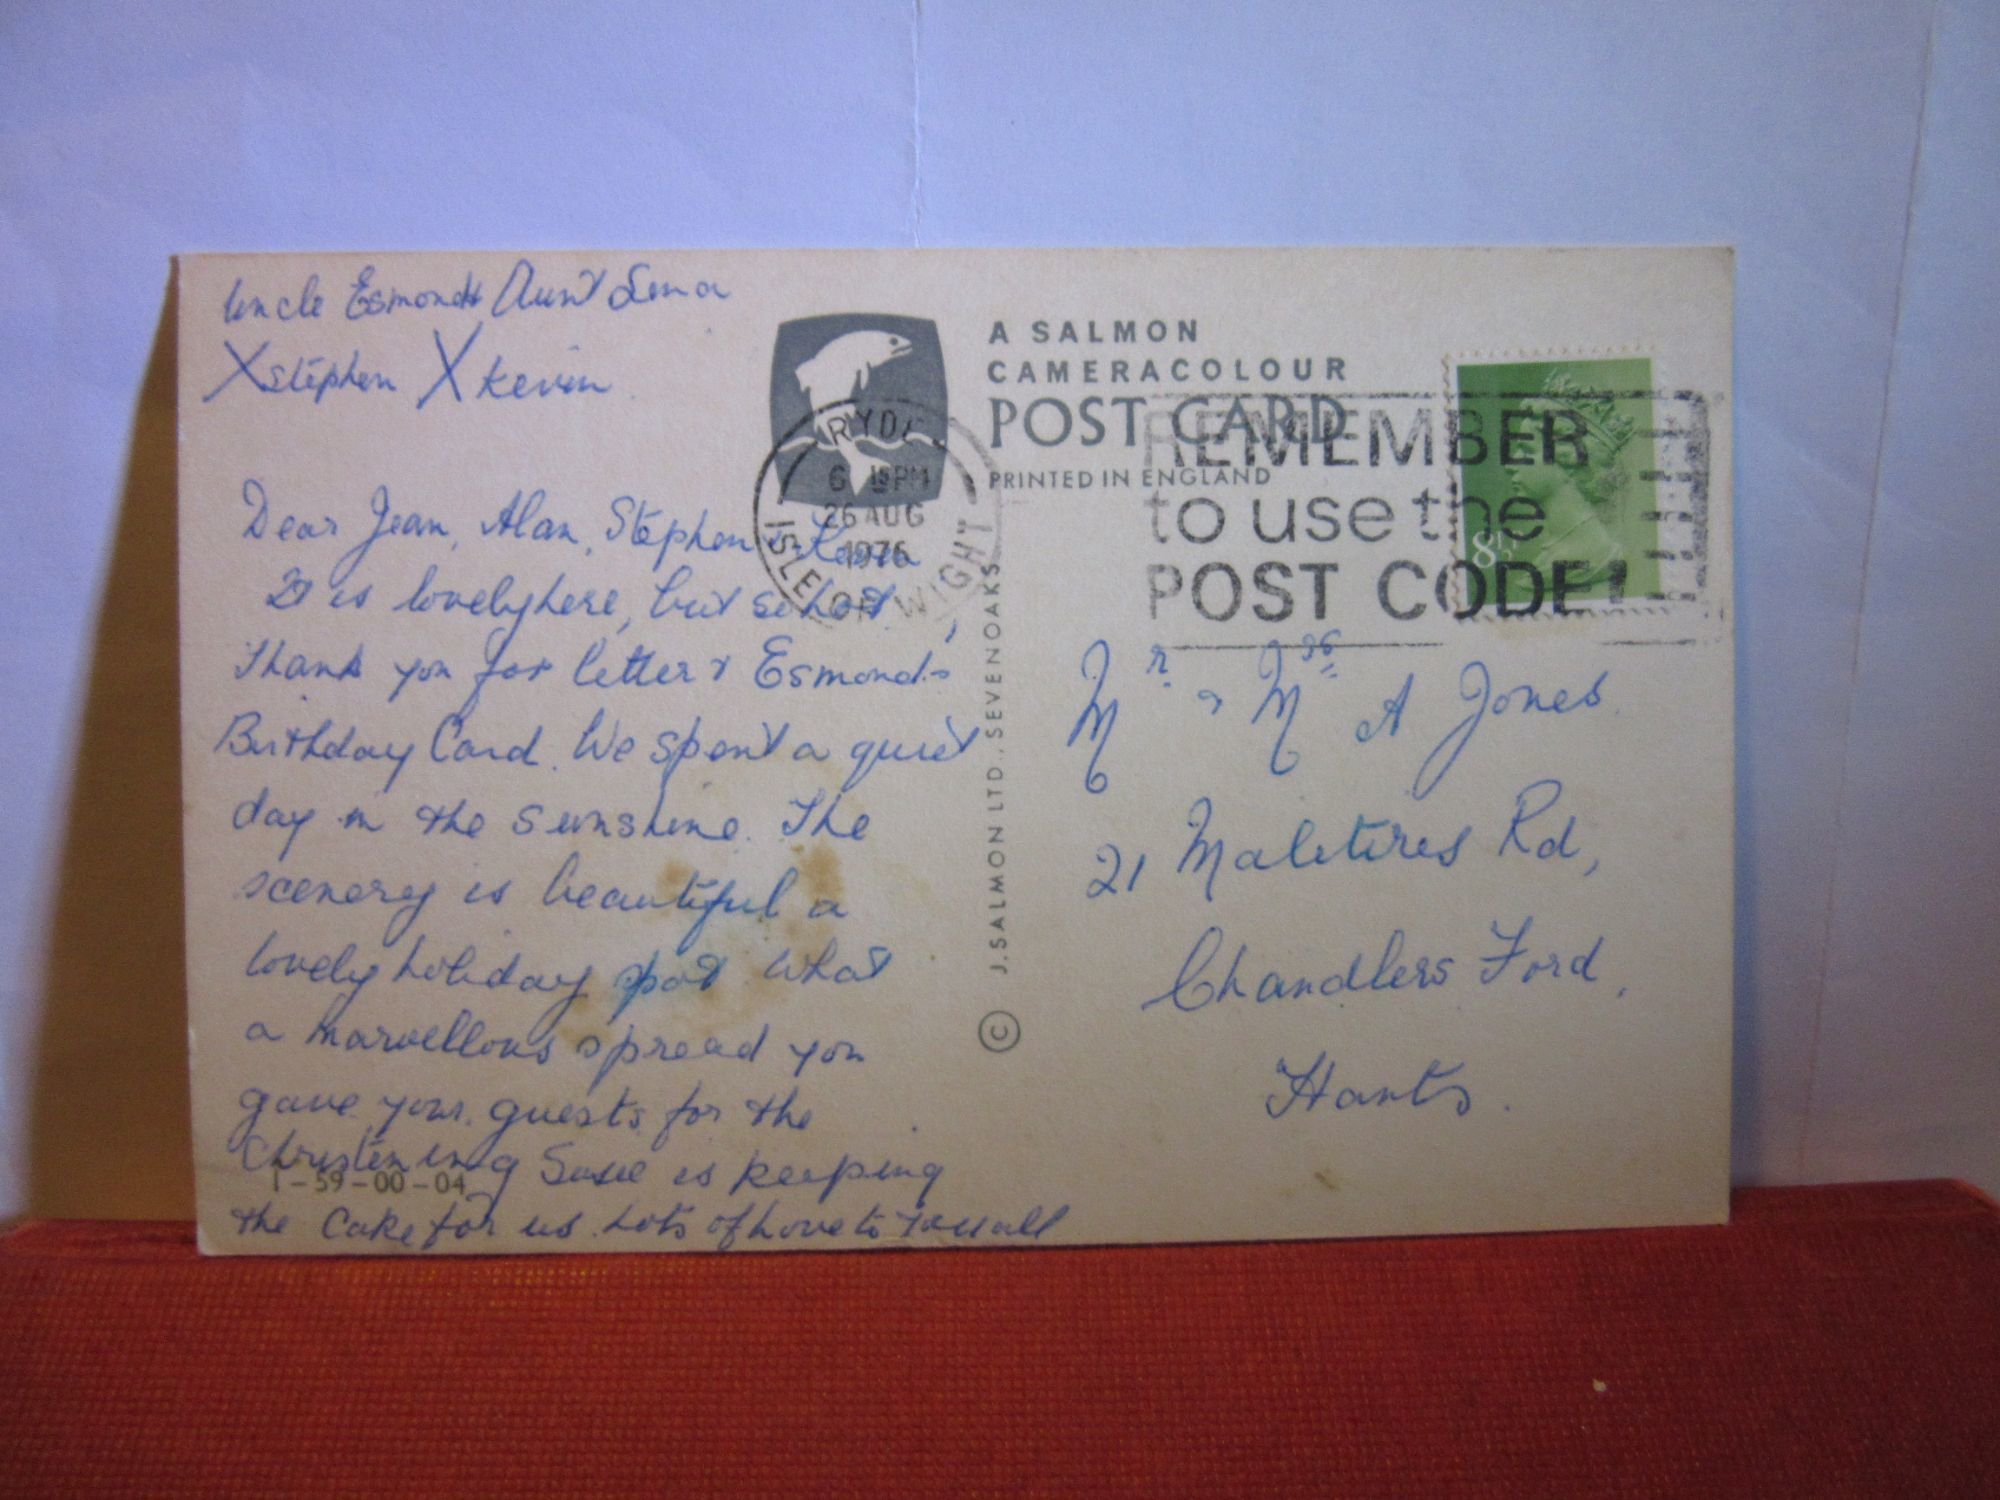 Uncle Esmond & Aunt Lena
X Stephen X Kevin.
Dear Jean, Alan, Stephen & Kevin
It is lovely here, but so hot,
Thank you for letter & Esmonds
Birthday Card. We spent a quiet
day in the sunshine. The
scenery is beautiful a
lovely holiday spot what
a marvellous spread you
gave your guests for the
Christening Susie is keeping
the Cake for us. Lots of Love to You all
1-59-00-04
A SALMON
CAMERACOLOUR
POST CARD
PRINTED IN ENGLAND
RYDE
6 15PM
26 AUG
1976
ISLE OF WIGHT
REMEMBER
to use the
POST CODE!
8½P
© J. SALMON LTD., SEVENOAKS
Mr & Mrs A Jones.
21 Rd,
Chandlers Ford,
Hants.